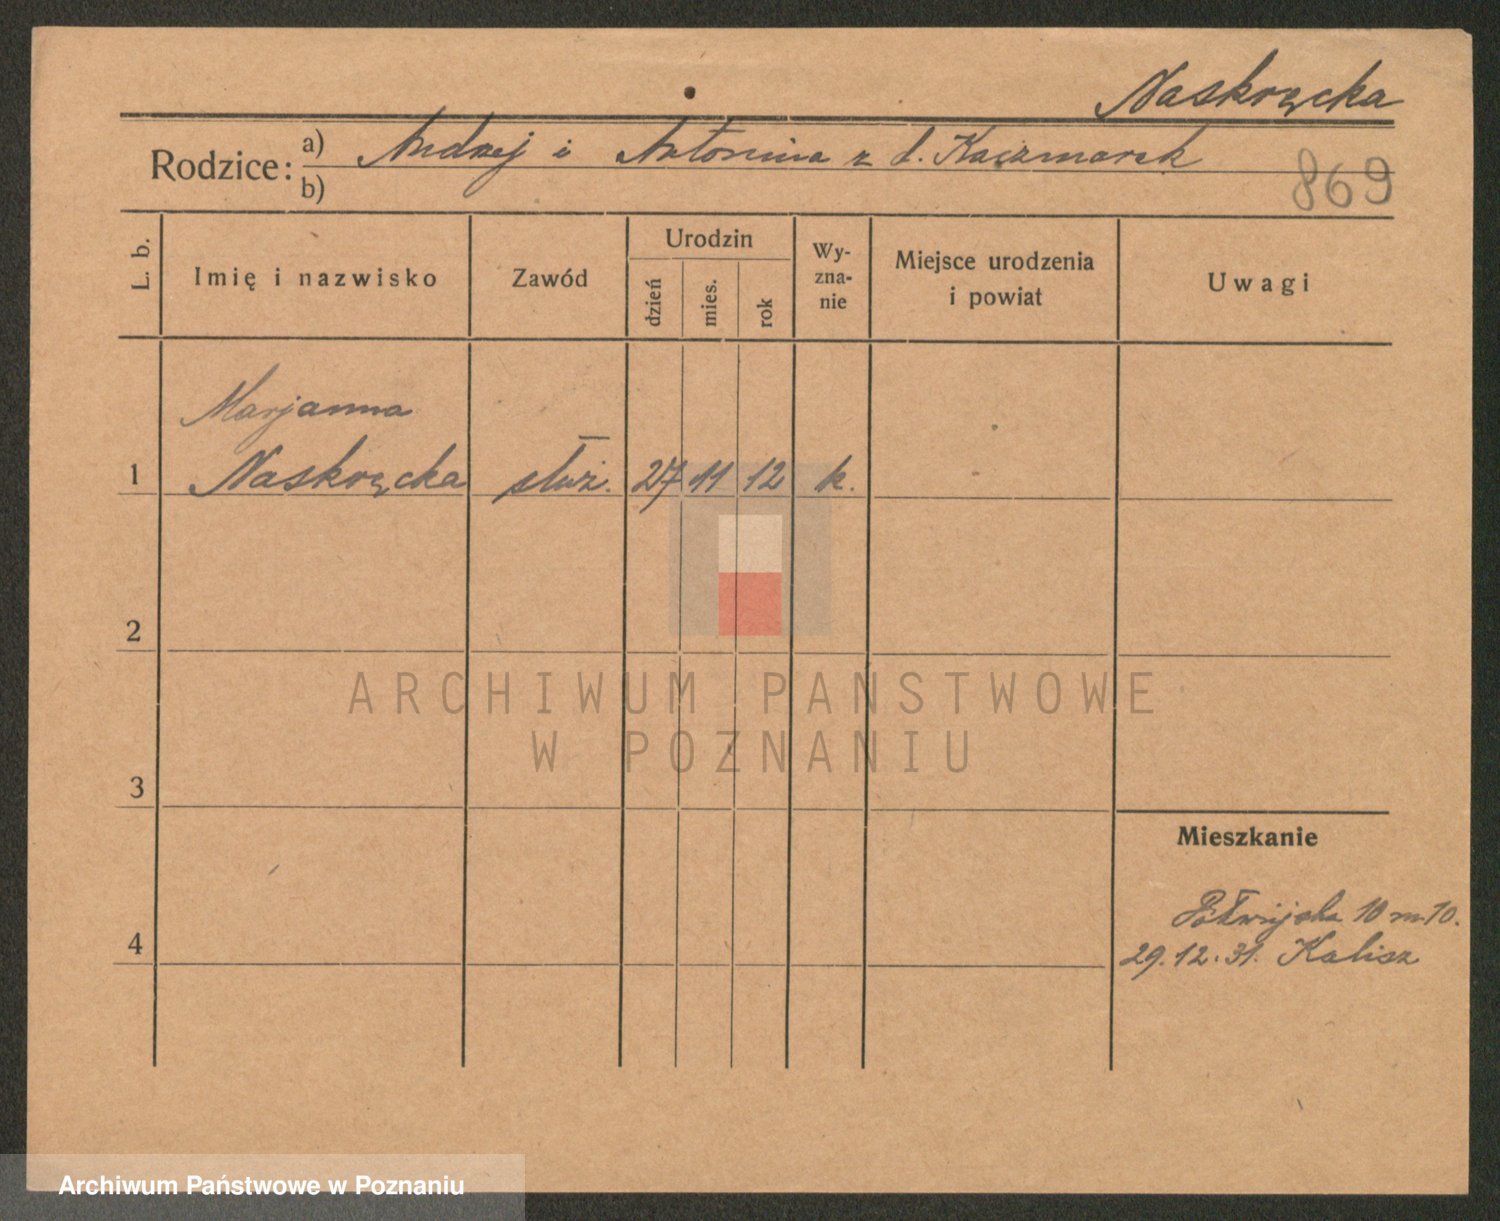 Naskręcka
Rodzice: a) Andrzej i Antonina z d. Kaczmarek
b)
869
L. b.
Imię i nazwisko
Zawód
Urodzin
dzień
mies.
rok
Wy-
zna-
nie
Miejsce urodzenia
i powiat
Uwagi
Marjanna
1 Naskręcka służ. 27 11 12 k.
2
3
4
Mieszkanie
10 m 10.
29.12.31. Kalisz
ARCHIWUM PANSTWOWE
W POZNANIU
Archiwum Państwowe w Poznaniu